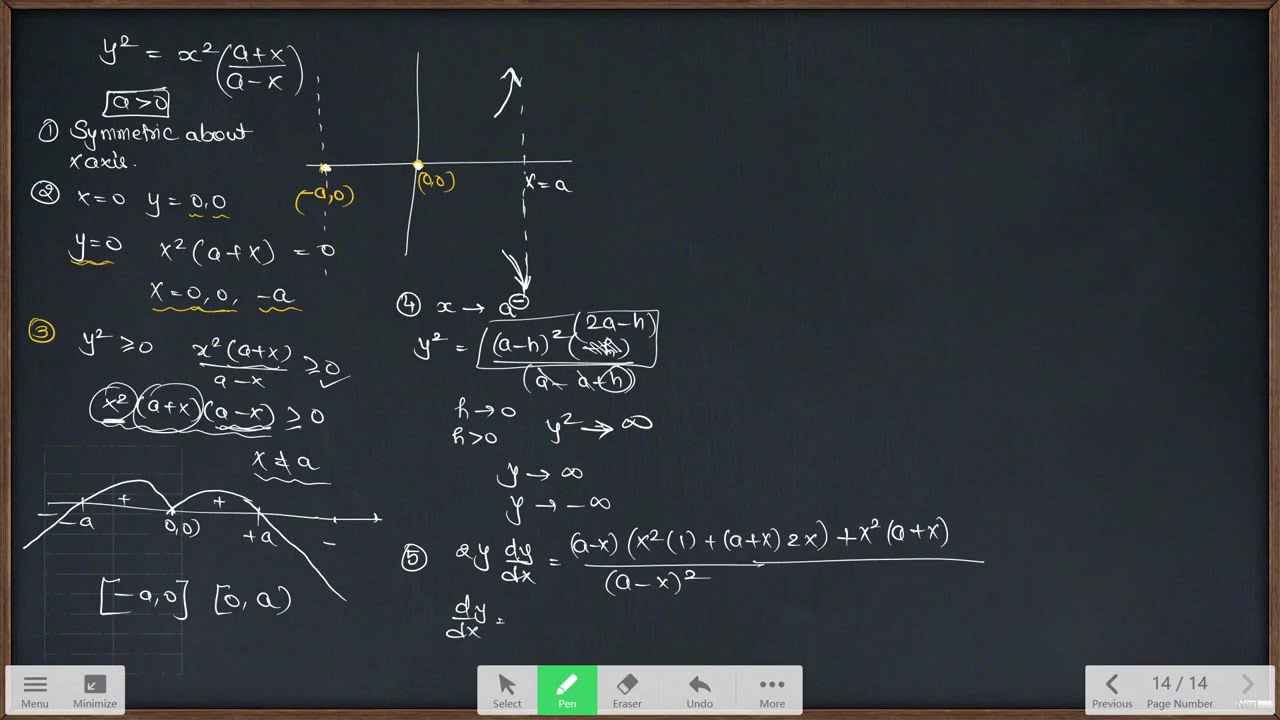 y² = x²((a+x)/(a-x))
a>0
① Symmetric about
x axis.
② x=0 y=0,0
y=0 x²(a+x) = 0
x=0,0, -a
③ y² ≥ 0 x²(a+x)/(a-x) ≥ 0
x² (a+x) (a-x) ≥ 0
x ≠ a
- -a + 0,0) + +a -
[-a,0] [0,a)
(-a,0) (0,0) x=a
④ x → a⁻
y² = (a-h)² (2a-h)/(a-a+h)
h→0
h>0 y² → ∞
y → ∞
y → -∞
⑤ 2y dy/dx = (a-x)(x²(1)+(a+x)2x)+x²(a+x)/(a-x)²
dy/dx =
Menu Minimize Select Pen Eraser Undo More Previous 14 / 14 Page Number Next